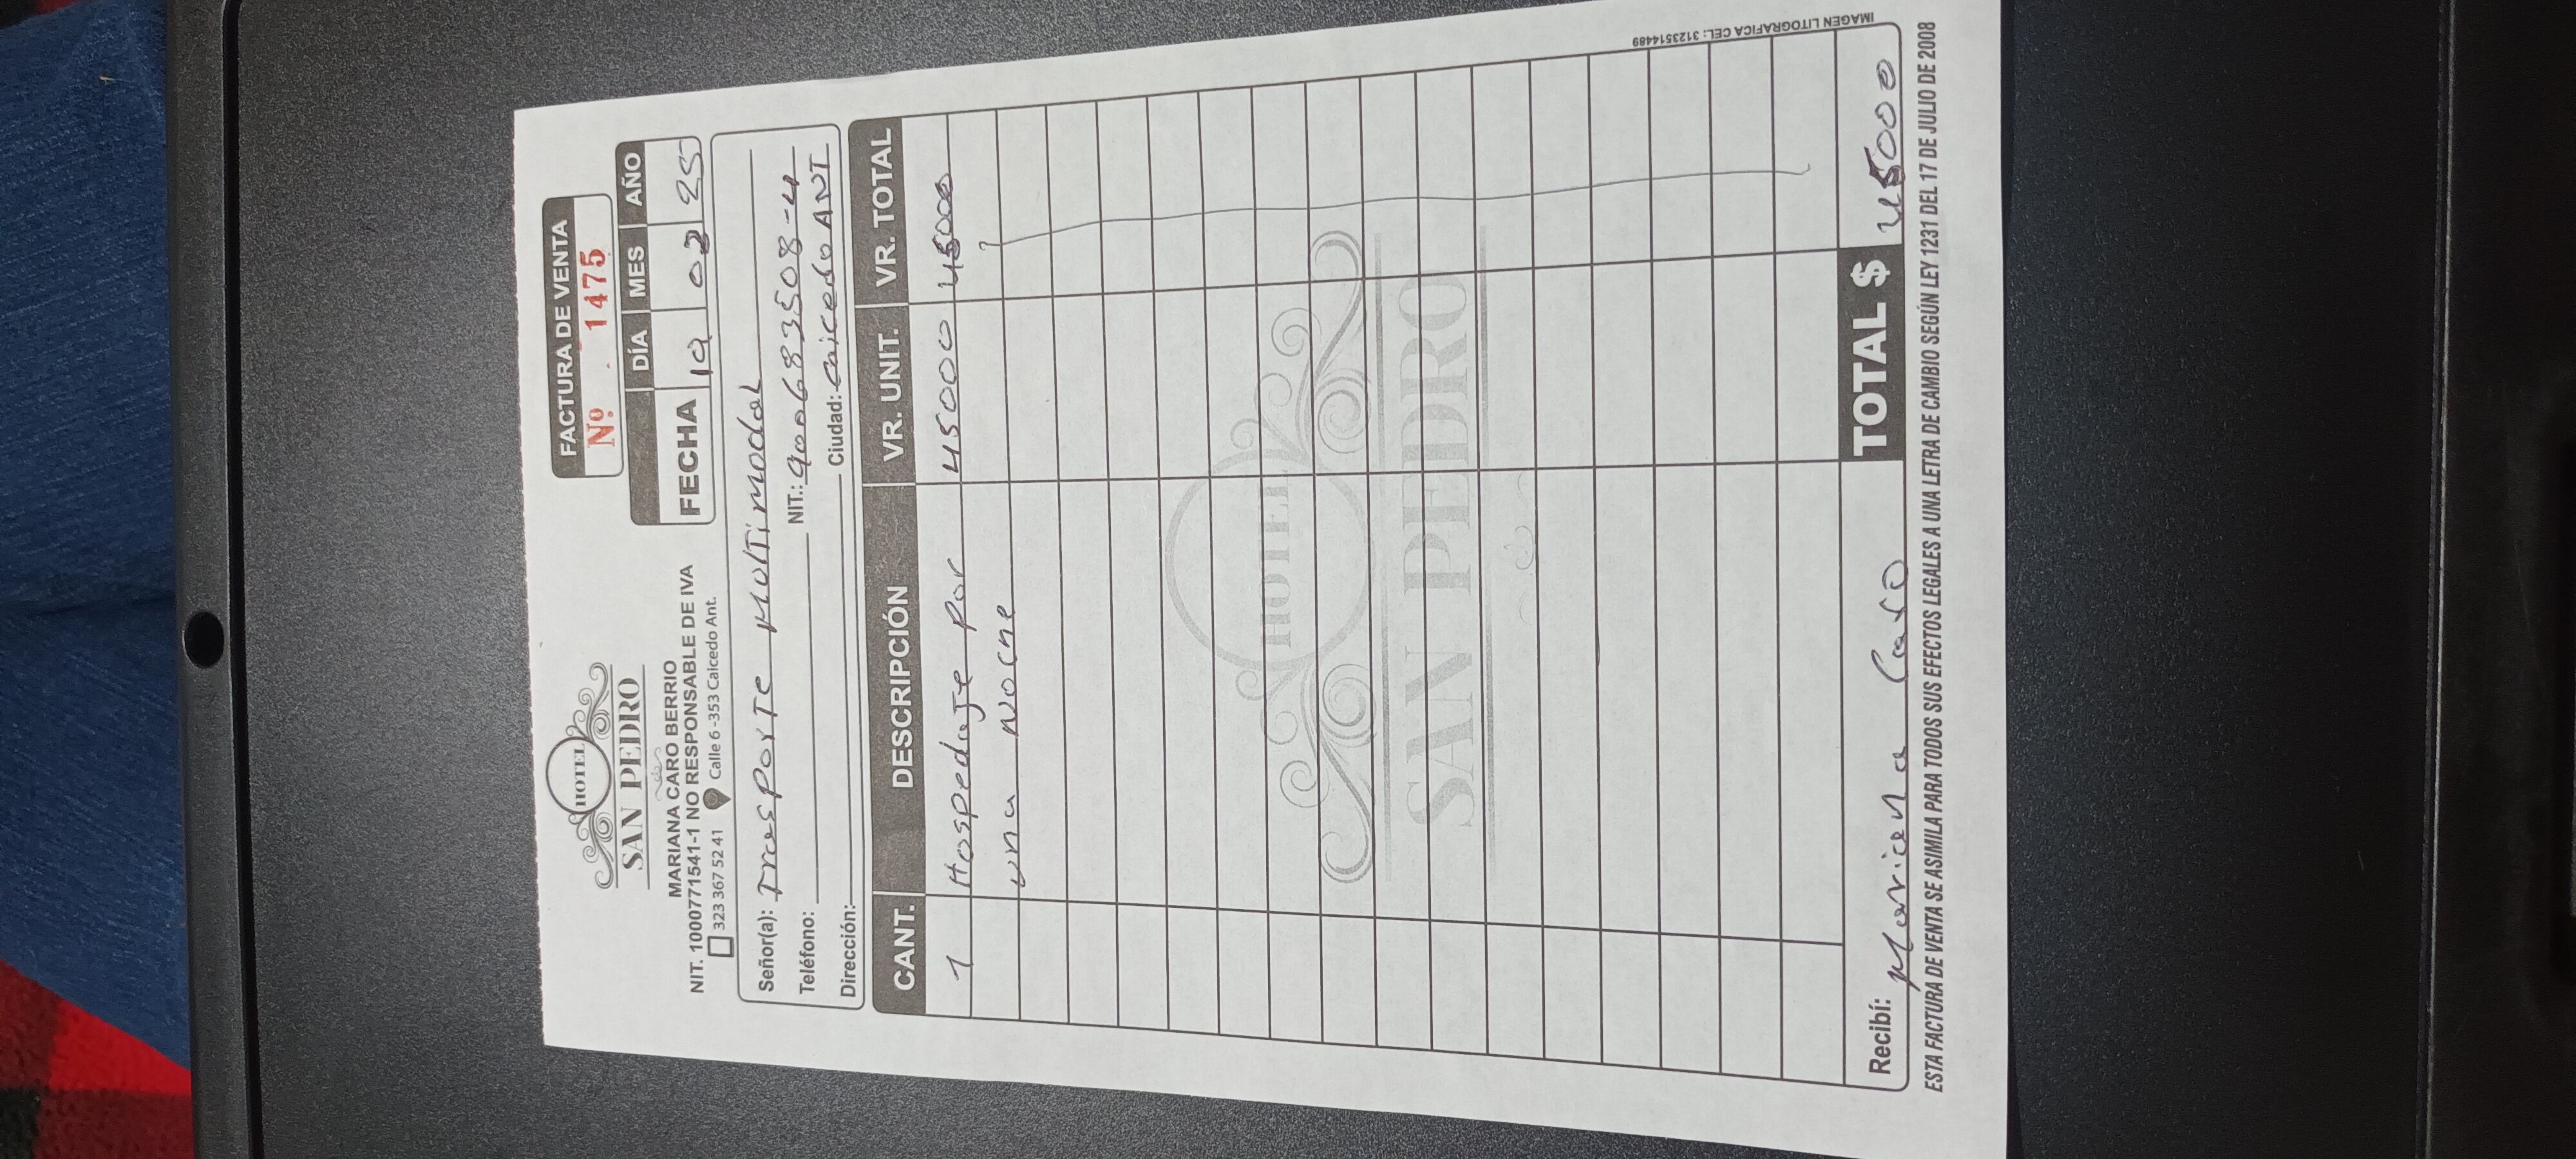 HOTEL
SAN PEDRO
MARIANA CARO BERRIO
NIT. 1000771541-1 NO RESPONSABLE DE IVA
323 367 52 41 Calle 6 -353 Caicedo Ant.
FACTURA DE VENTA
Nº 1475
DÍA MES AÑO
FECHA 19 02 25
Señor(a): Trasporte Multimodal
Teléfono: NIT.: 900683508-4
Dirección: Ciudad: Caicedo ANT
CANT. DESCRIPCIÓN VR. UNIT. VR. TOTAL
1 Hospedaje por 45000 45000
una noche
HOTEL
SAN PEDRO
Recibí: Mariana Caro TOTAL $ 45000
ESTA FACTURA DE VENTA SE ASIMILA PARA TODOS SUS EFECTOS LEGALES A UNA LETRA DE CAMBIO SEGÚN LEY 1231 DEL 17 DE JULIO DE 2008
IMAGEN LITOGRAFICA CEL: 3123514489